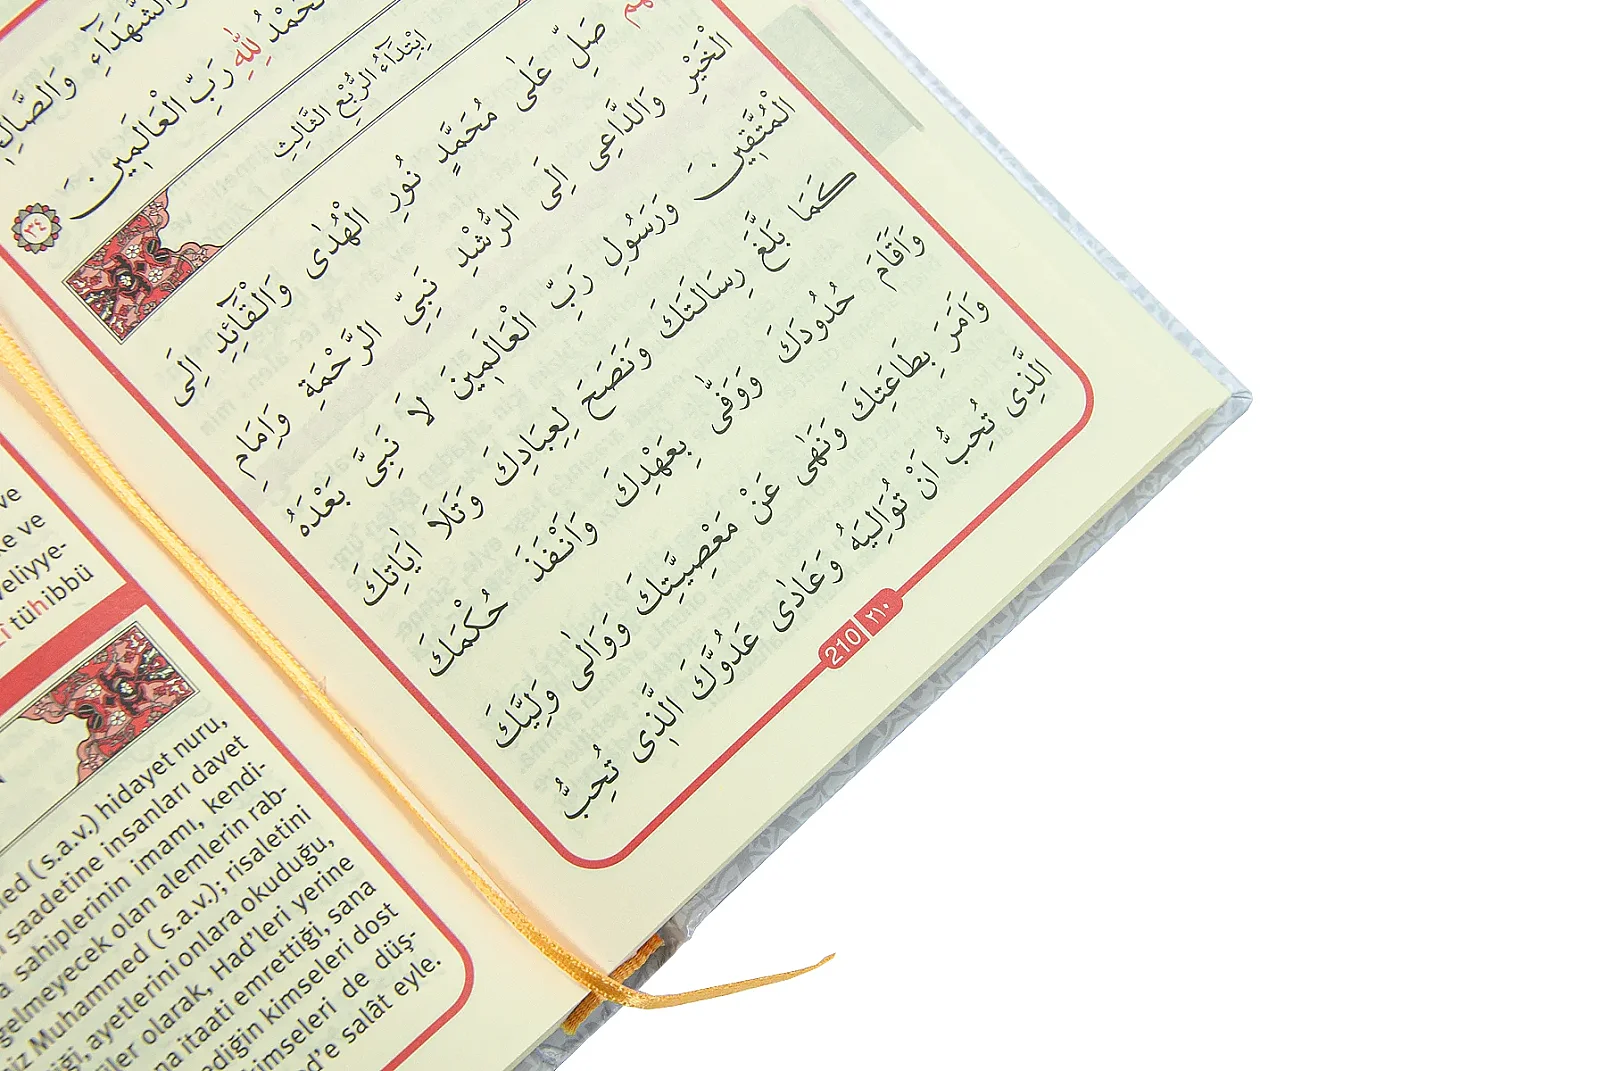 وَالشُّهَدَآءِ وَالصَّالِحِينَ
لِلّٰهِ رَبِّ الْعَالَمِينَ ٣٤
اِبْتِدَآءُ الرُّبْعِ الثَّالِثِ
صَلِّ عَلٰى مُحَمَّدٍ نُورِ الْهُدٰى وَالْقَآئِدِ اِلَى
الْخَيْرِ وَالدَّاعِى اِلَى الرُّشْدِ نَبِيِّ الرَّحْمَةِ وَاِمَامِ
الْمُتَّقِينَ وَرَسُولِ رَبِّ الْعَالَمِينَ لَا نَبِىَّ بَعْدَهُ
كَمَا بَلَّغَ رِسَالَتَكَ وَنَصَحَ لِعِبَادِكَ وَتَلَا اٰيَاتِكَ
وَاَقَامَ حُدُودَكَ وَوَفّٰى بِعَهْدِكَ وَاَنْفَذَ حُكْمَكَ
وَاَمَرَ بِطَاعَتِكَ وَنَهٰى عَنْ مَعْصِيَتِكَ وَوَالٰى وَلِيَّكَ
الَّذِى تُحِبُّ اَنْ تُوَالِيَهُ وَعَادٰى عَدُوَّكَ الَّذِى تُحِبُّ
210 ٢١٠
ve
ke ve
veliyye-
tühibbü
(s.a.v.) hidayet nuru,
saadetine insanları davet
sahiplerinin imamı, kendi-
gelmeyecek olan alemlerin rab-
Muhammed ( s.a.v.); risaletini
ayetlerini onlara okuduğu,
olarak, Had'leri yerine
itaati emrettiği, sana
kimseleri dost
kimseleri de düş-
salât eyle.